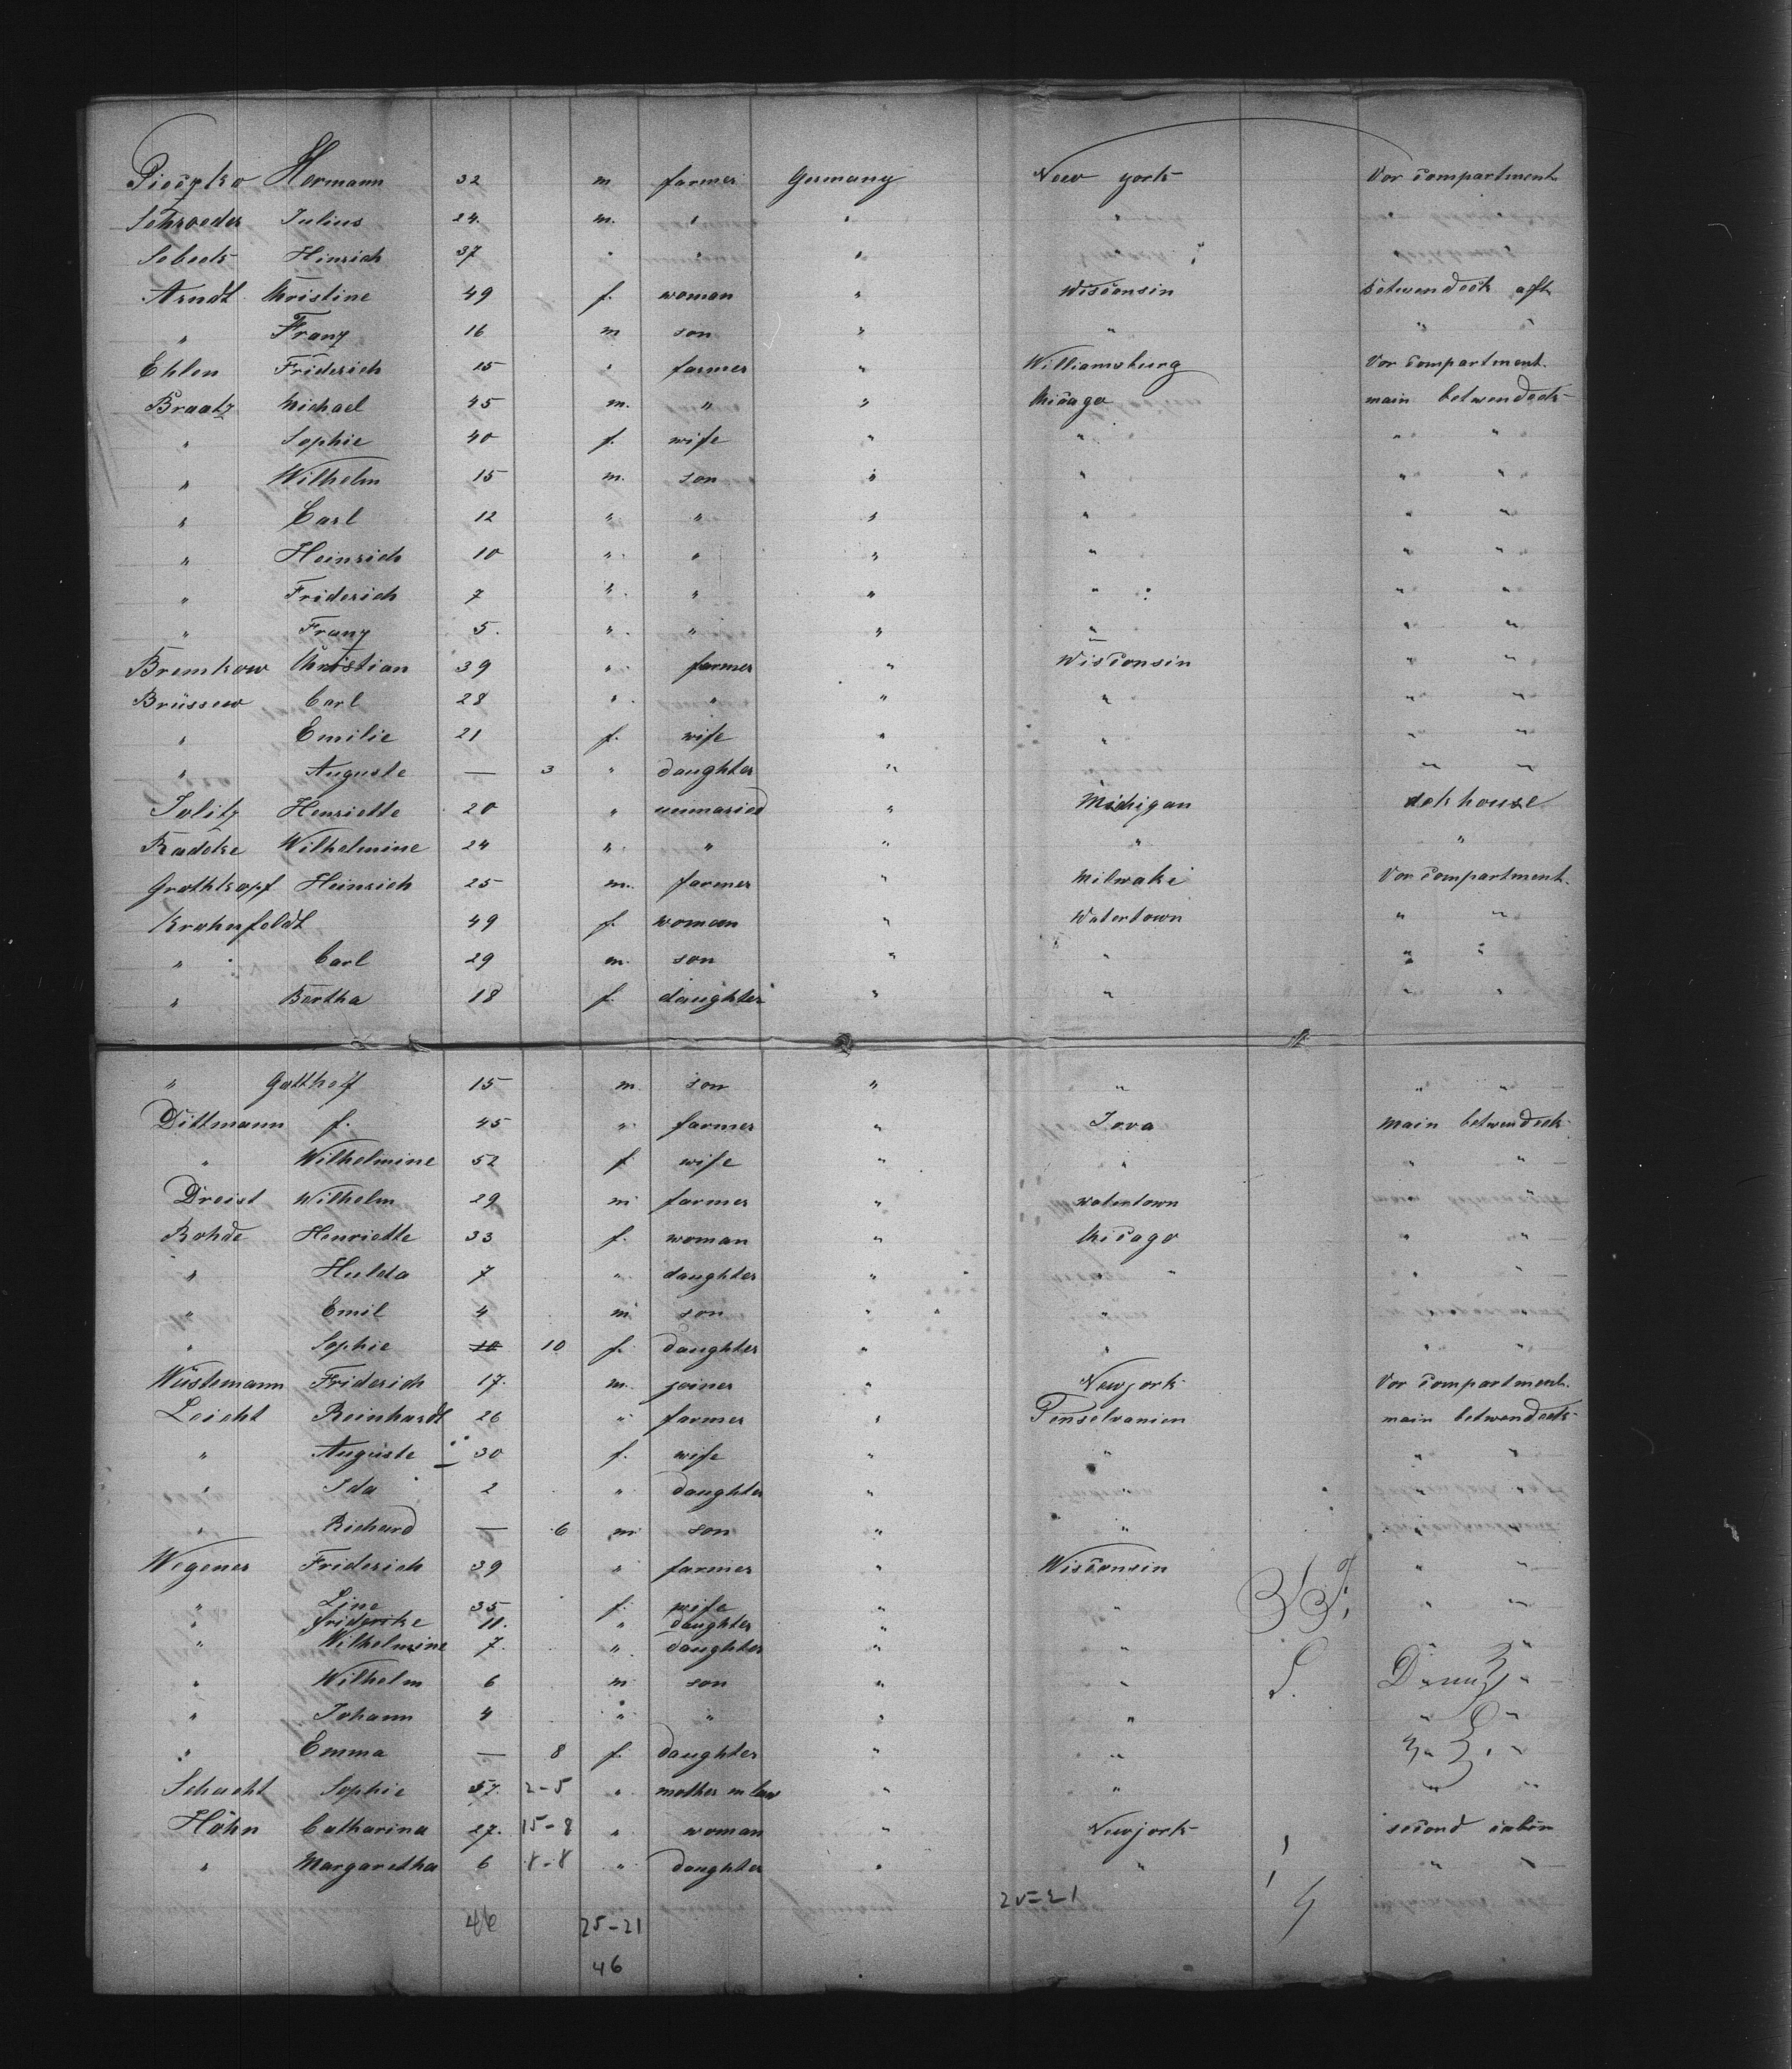 Pieczko Hermann 32 m farmer Germany New york Vor compartment
Schroeder Julius 24. m. " " " "
Sobeck Hinrich 37 " " "
Arndt Christine 49 f. woman " Wisconsin betwendeck aft
" Franz 16 m son " " " "
Ehlen Friderich 15 " farmer " Williamsburg Vor compartment.
Braatz Michael 45 m. " " Chicago main betwendeck
" Sophie 40 f. wife " " " "
" Wilhelm 15 m. son " " " "
" Carl 12 " " " " " "
" Heinrich 10 " " " " " "
" Friderich 7 " " " " " "
" Franz 5. " " " " " "
Bremkow Christian 39 " farmer " Wisconsin " "
Brüssew Carl 28 " " " " " "
" Emilie 21 f. wife " " " "
" Auguste — 3 " daughter " " "
Jolitz Henriette 20 " unmaried " Michigan dekhouse
Radcke Wilhelmine 24 " " " " "
Grothkopf Heinrich 25 m. farmer " Milwaki Vor compartment.
Krohnfeldt 49 f. woman " Watertown " "
" Carl 29 m. son " " " "
" Bertha 18 f. daughter " " " "
" Gotthilf 15 m. son " " " "
Dittmann f. 45 " farmer " Iova main betwendeck
" Wilhelmine 52 f wife " " " "
Dreist Wilhelm 29 m farmer " watertown " "
Rohde Henriette 33 f. woman " Chicago " "
" Hulda 7 " daughter " " " " "
" Emil 4 m son " "
" Sophie 10 10 f. daughter " " " "
Wüstemann Friderich 17. m. joiner " Newjork Vor compartment.
Leicht Reinhardt 26 " farmer " Penselvanien main betwendeck
" Auguste 30 f. wife " " " "
" Ida 2 " daughter " " " "
" Richard — 6 m son " " "
Wegener Friderich 39 " farmer " Wisconsin " "
" Line 35 f. wife " " " "
" friderike 11. " daughter "
" Wilhelmine 7. " daughter " " " "
" Wilhelm 6 m son " " "
" Johann 4 " " " " " "
" Emma — 8 f. daughter " " "
Schacht Sophie 57. 2-5 " mother in law " " " "
Höhn Catharina 27. 15-8 " woman " Newjork second cabin
" Margaretha 6 8-8 " daughter " " " "
46 25-21
46